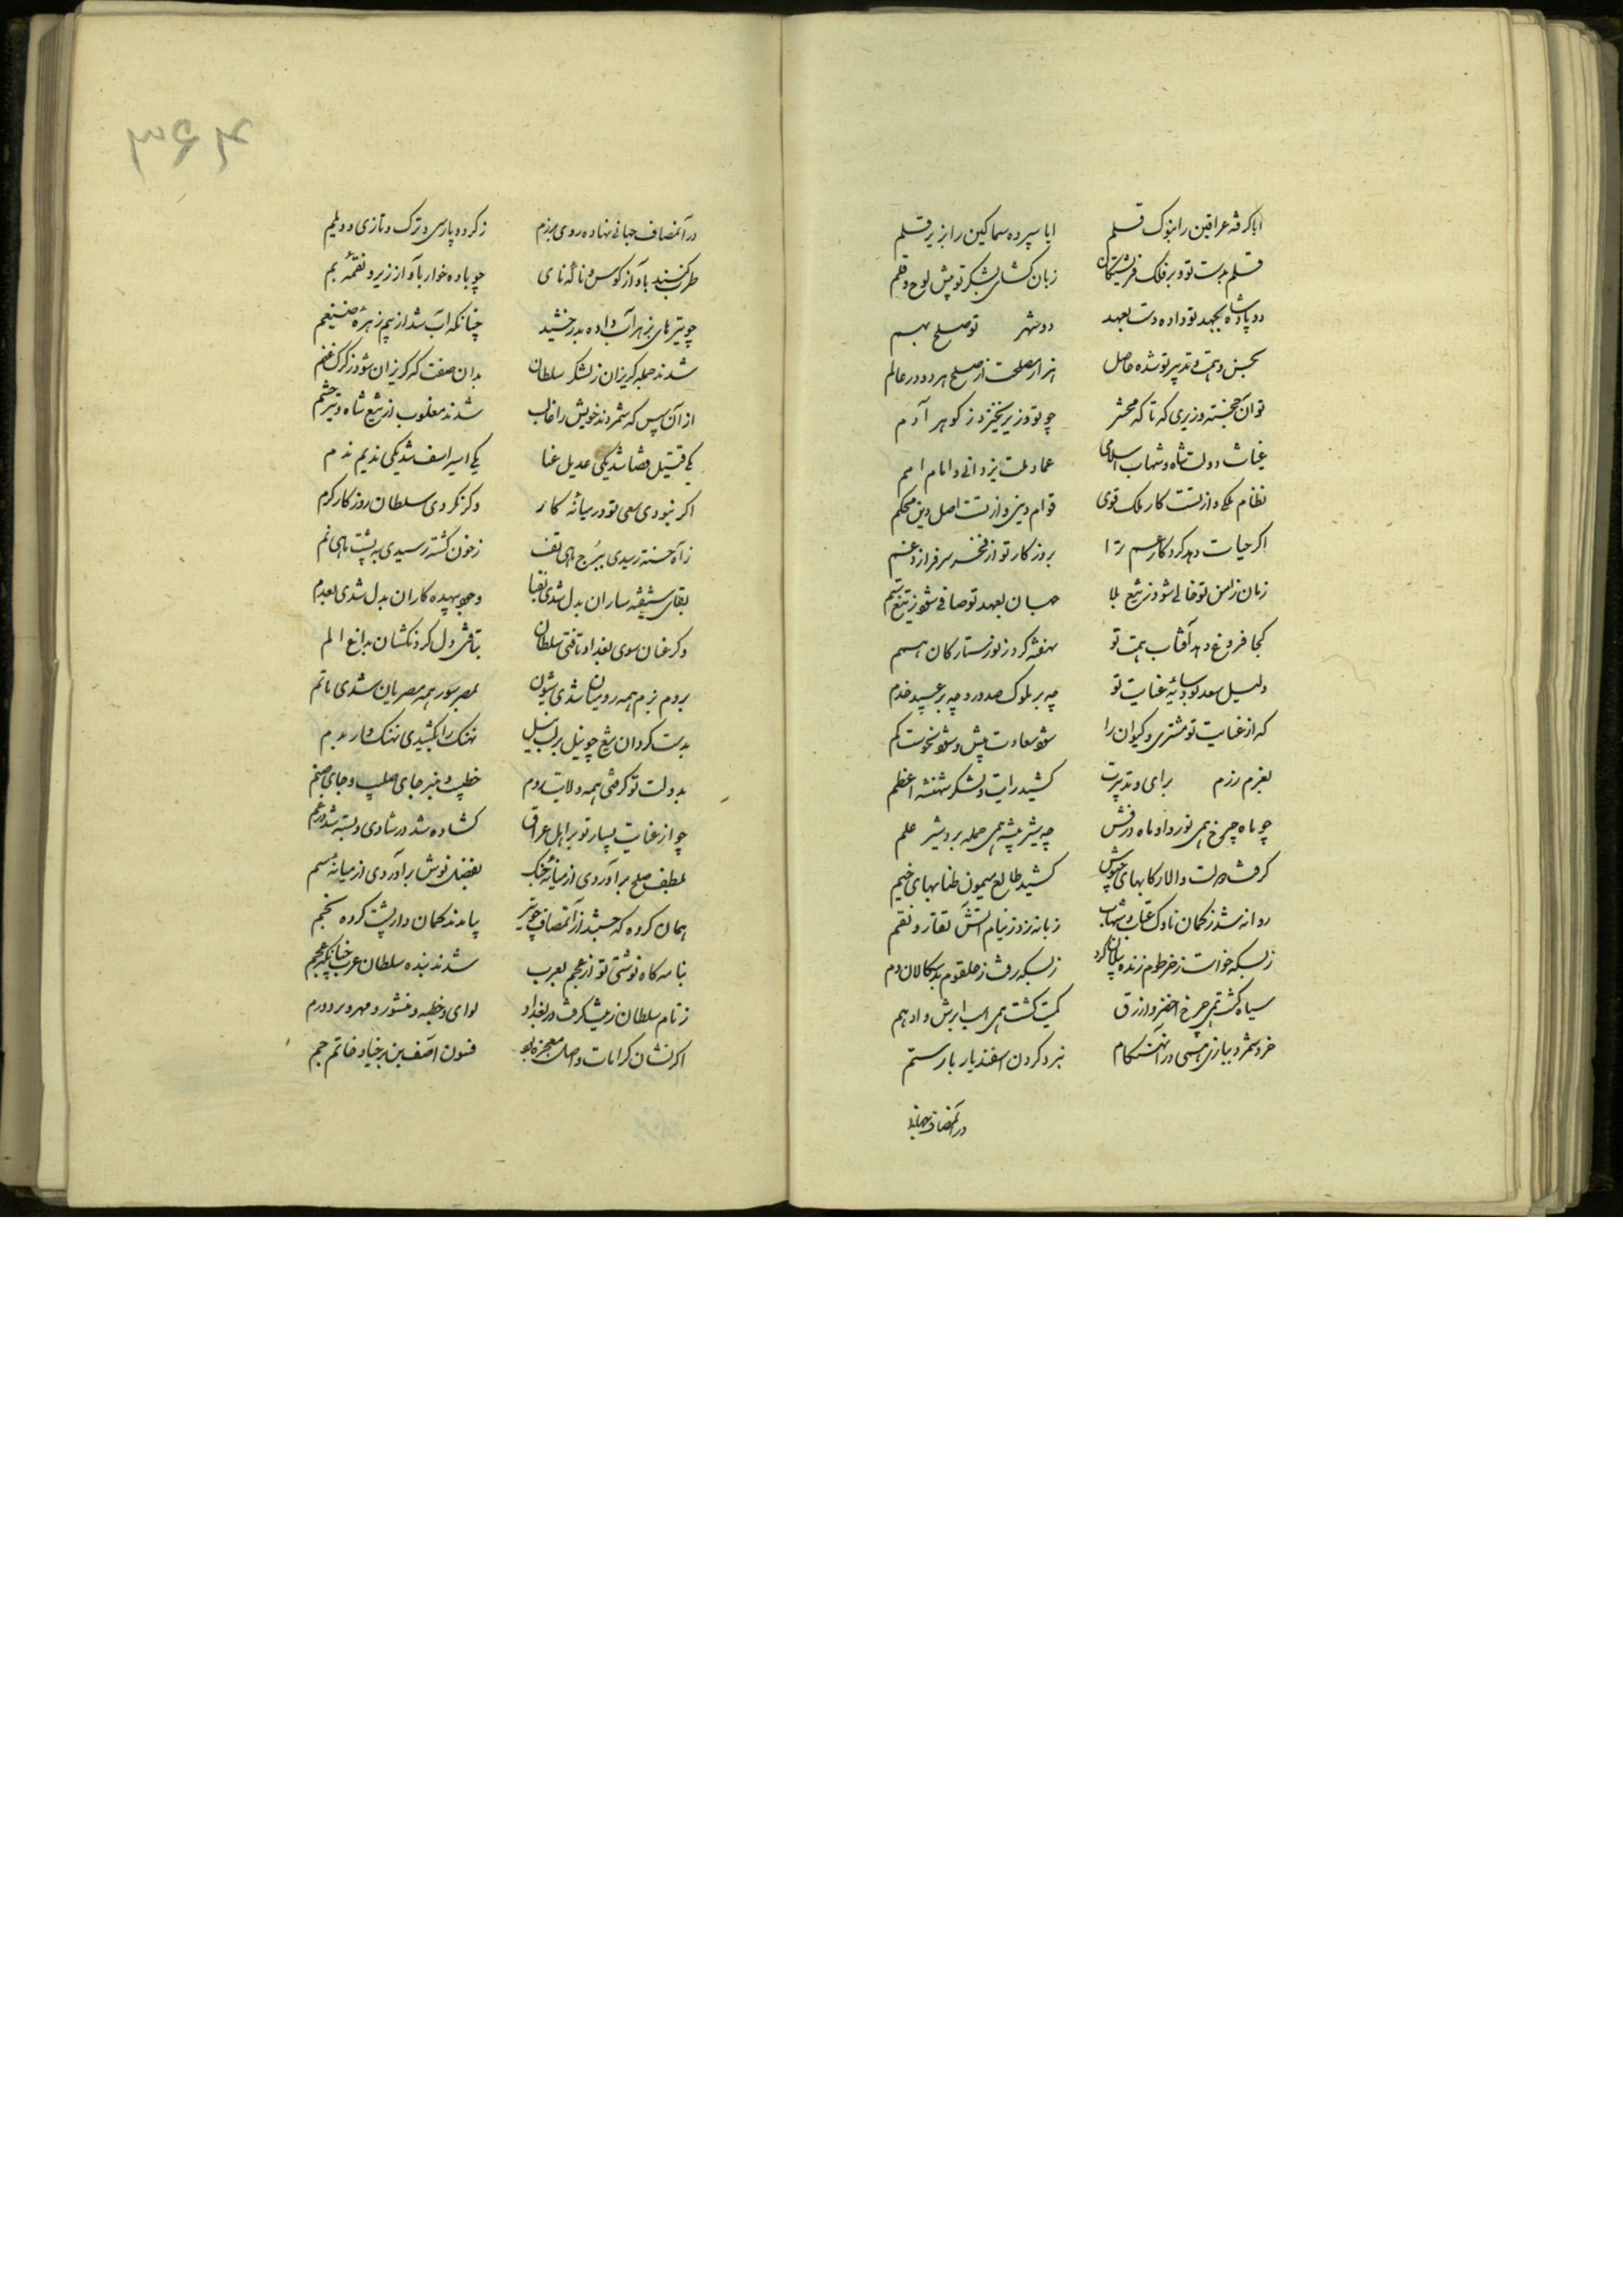 ایا گرفته عراقین را بنوک قلم ایا سپرده سماکین را بزیر قلم
قلم بدست تو و بر فلک فرشتگان زبان کشاده بشکر تو پیش لوح و قلم
دو پادشاه بجهد تو داده دست بعهد دو شهر تو صلح بهم
بحسن و همت و تدبیر تو شده حاصل هزار مصلحت از صلح هر دو در عالم
تو آن خجسته وزیری که تا که محشر چو تو وزیر نخیزد ز گوهر آدم
غیاث دولت شاه و شهاب اسلامی عماد ملت یزدانی و امام امم
نظام ملکی و از تست کار ملک قوی قوام دینی و از تست اصل دین محکم
اگر حیات دهد کردگار عم ترا بروزگار تو از فخر سرفرازد عم
زمان ز امن تو خالی شود ز تیغ بلا جهان بعهد تو صافی شود ز تیغ ستم
کجا فروغ دهد آفتاب همت تو نهفته گردد ز نور ستارگان همم
دلیل سعد بود سائه عنایت تو چه بر ملوک و صدور و چه بر عبید و خدم
که از عنایت تو مشتری و کیوان را شود سعادت بیش و شود نحوست کم
بعزم رزم برای و تدبیرت کشید رایت و لشکر شهنشه اعظم
چو ماه چرخ همی نور داد ماه درفش چه شیر بیشه همی حمله برد شیر علم
گرفت دولت والا رکابهای جیوش کشید طالع میمون طنابهای خیم
روانه شد ز کمان ناوک عقاب و شهاب زبانه زد ز نیام آتش نقار و نقم
ز بسکه خواست ز خرطوم زنده پیلان گرد ز بسکه رفت ز حلقوم بدسگالان دم
سیاه گشت همی چرخ اخضر و ازرق کمیت گشت همی اسب ابرش و ادهم
خرد شمرد ببازی همی در آن هنگام نبرد کردن اسفندیار با رستم
در آنمصاف جهانی
۳۶۴
در آنمصاف جهانی نهاده روی برزم ز کرد و پارسی و ترک و تازی و دیلم
طرب کنند بآواز کوس و نالۀ نای چو باده خوار بآواز زیر و نغمۀ بم
چو تیرهای بزهر آب داده بدرخشید چنانکه آب شد از بیم زهرۀ ضیغم
شدند جمله گریزان ز لشکر سلطان بدان صفت که گریزان شود ز گرگ غنم
از آن سپس که شمردند خویش را غالب شدند مغلوب از تیغ شاه و تیر حشم
یکی قتیل قضا شد یکی عدیل عنا یکی اسیر اسف شد یکی ندیم ندم
اگر نبودی سعی تو در میانۀ کار وگر نکردی سلطان روزگار کرم
ز آه خسته رسیدی ببرج ماهی تف ز خون گشته رسیدی به پشت ماهی نم
بقای شیفته ساران بدل شدی بفنا وجود بیهده کاران بدل شدی بعدم
وگر عنان سوی بغداد تافتی سلطان بتافتی دل گردنکشان بداغ الم
بروم بزم همه رومیان شدی شیون بمصر سور همه مصریان شدی ماتم
بدست گردان تیغ چو نیل بر لب نیل نهنگ را بکشیدی نهنگ وار بدم
بدولت تو گرفتی همه ولایت روم خطیب و منبر جای صلیب و جای صنم
چو از عنایت بسیار تو بر اهل عراق گشاده شد در شادی و بسته شد در غم
بلطف صلح برآوردی از میانۀ جنگ بفضل نوش برآوردی از میانۀ سم
همان گروه که جستند از آنمصاف چو تیر بیامدند کمان وار پشت کرده بخم
بنامه گاه نوشتی تو از عجم بعرب شدند بنده سلطان عرب چنانکه عجم
ز نام سلطان زینت گرفت در بغداد لوای و خطبه و منشور و مهر و برد و درم
اگر نشان کرامات و اصل معجزه بود فسون آصف بن برخیا و خاتم جم